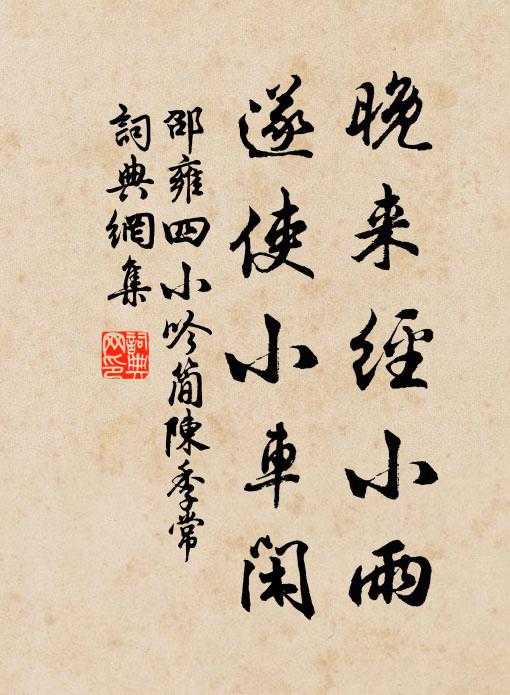 晚来經小雨
遂使小車閑
邵雍四小吟简陳季常
詞典網集
詞典
网印